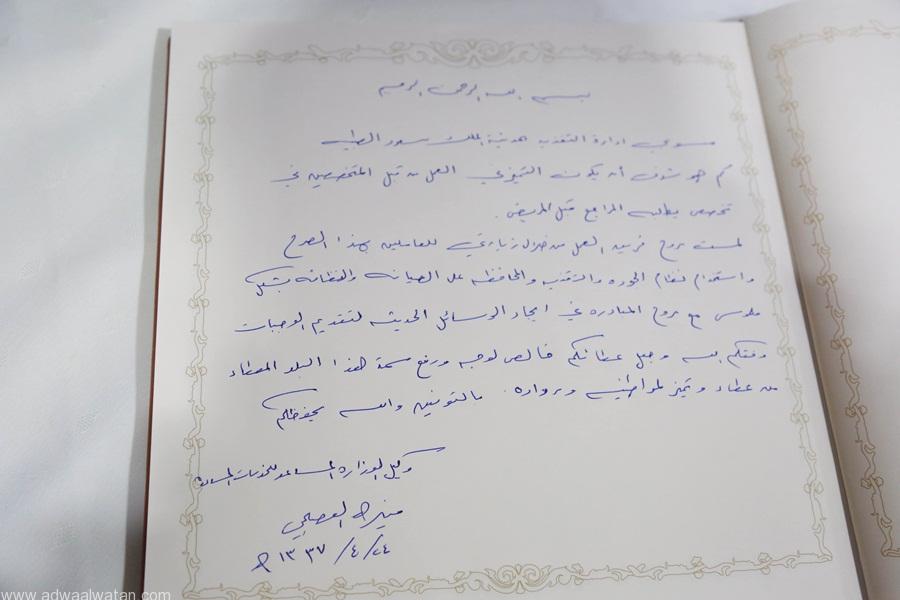 بسم الله الرحمن الرحيم
منسوبي إدارة التغذية بمدينة الملك سعود الطبية
كم هو شرف أن يكون التميز في العمل من قبل المتخصصين في
تخصص يطلبه المراجع قبل المريض.
لمست روح فريق العمل من خلال زيارتي للعاملين بهذا الصرح
واستخدام نظام الجودة والتغذية والمحافظة على الصيانة والنظافة بشكل
ملموس مع روح المبادرة في ايجاد الوسائل الحديثة لتقديم الوجبات
وفقكم الله وجعل عطائكم خالص لوجهه ورفع سمعة هذا البلد المعطاء
من عطاء وتميز لمواطنيه ورواده. بالتوفيق والله يحفظكم
وكيل الوزارة المساعد للخدمات المساندة
منيرة العصيمي
٢٤/٤/١٣٣٧ هـ
www.adwaalwatan.com